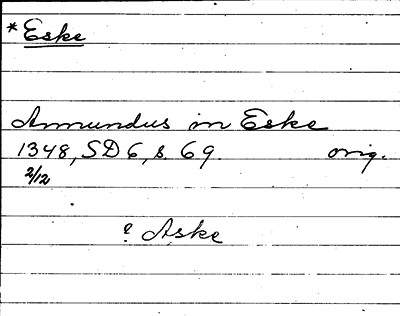 * Eske
Amundus in Eske
1348, SD 6, s. 69. orig.
2/12
? Aske